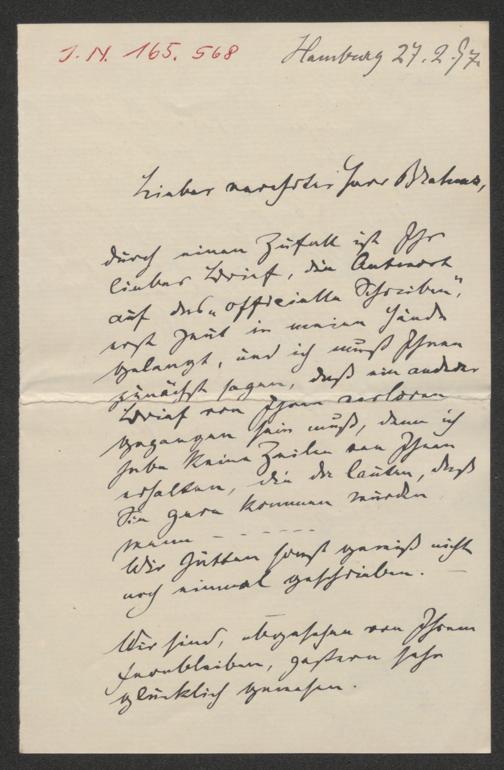 J. N. 165.568
Hamburg 27.2.97.
Lieber verehrter Herr Brahms,
durch einen Zufall ist Ihr
lieber Brief, die Antwort
auf das „officielle Schreiben",
erst heut in meine Hände
gelangt, und ich muß Ihnen
zunächst sagen, daß ein anderer
Brief von Ihnen verloren
gegangen sein muß, denn ich
habe keine Zeilen von Ihnen
erhalten, die da lauten, daß
Sie gern kommen würden
wenn – – – – – –
Wir hätten sonst gewiß nicht
noch einmal geschrieben. –
Wir sind, abgesehen von Ihrem
Fernbleiben, gestern sehr
glücklich gewesen.